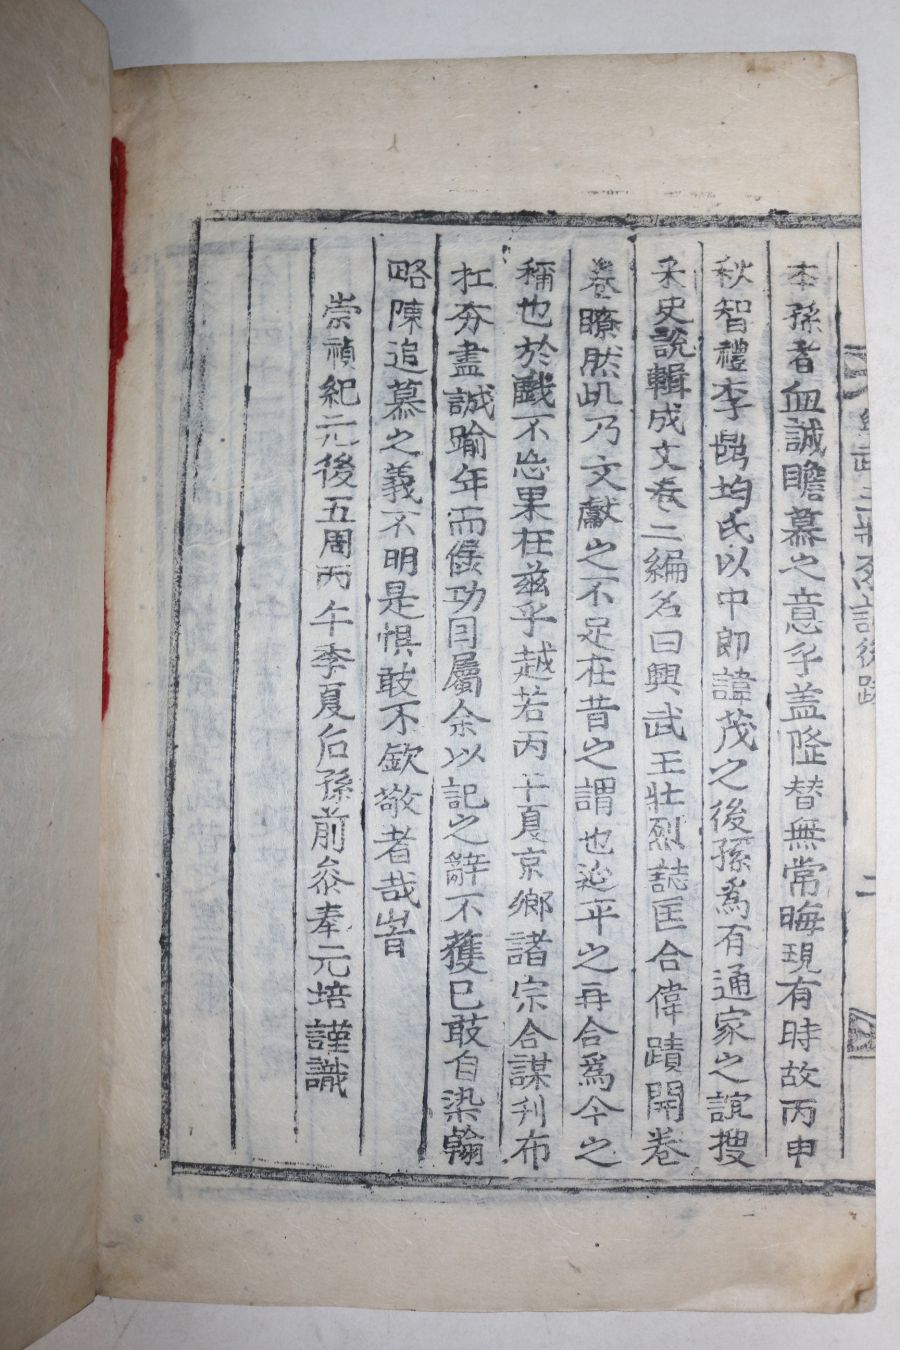 興武王壯烈誌後跋
二
本孫者血誠瞻慕之意乎盖隆替無常晦現有時故丙申
秋智禮李均氏以中郞諱茂之後孫爲有通家之誼搜
釆史說輯成文卷二編名曰興武王壯烈誌匡合偉蹟開卷
卷瞭然此乃文獻之不足在昔之謂也延平之再合爲今之
稱也於戱不忘果在玆乎越若丙午夏京鄕諸宗合謀刋布
扛夯盡誠踰年而佞功因屬余以記之辭不獲已敢自染翰
略陳追慕之義不明是惧敢不欽敬者哉峕
崇禎紀元後五周丙午季夏后孫前叅奉元培謹識